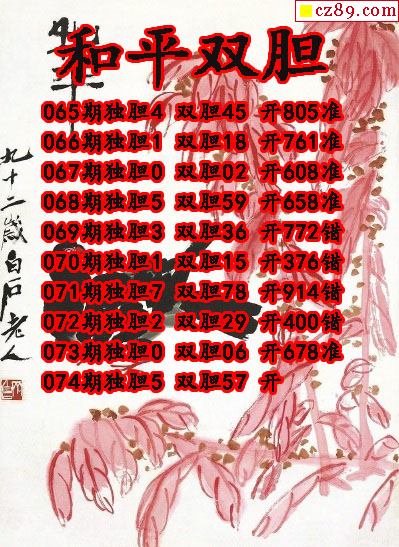 cz89.com
和平双胆
065期独胆4 双胆45 开805准
066期独胆1 双胆18 开761准
067期独胆0 双胆02 开608准
068期独胆5 双胆59 开658准
069期独胆3 双胆36 开772错
070期独胆1 双胆15 开376错
071期独胆7 双胆78 开914错
072期独胆2 双胆29 开400错
073期独胆0 双胆06 开678准
074期独胆5 双胆57 开
九十二岁白石老人